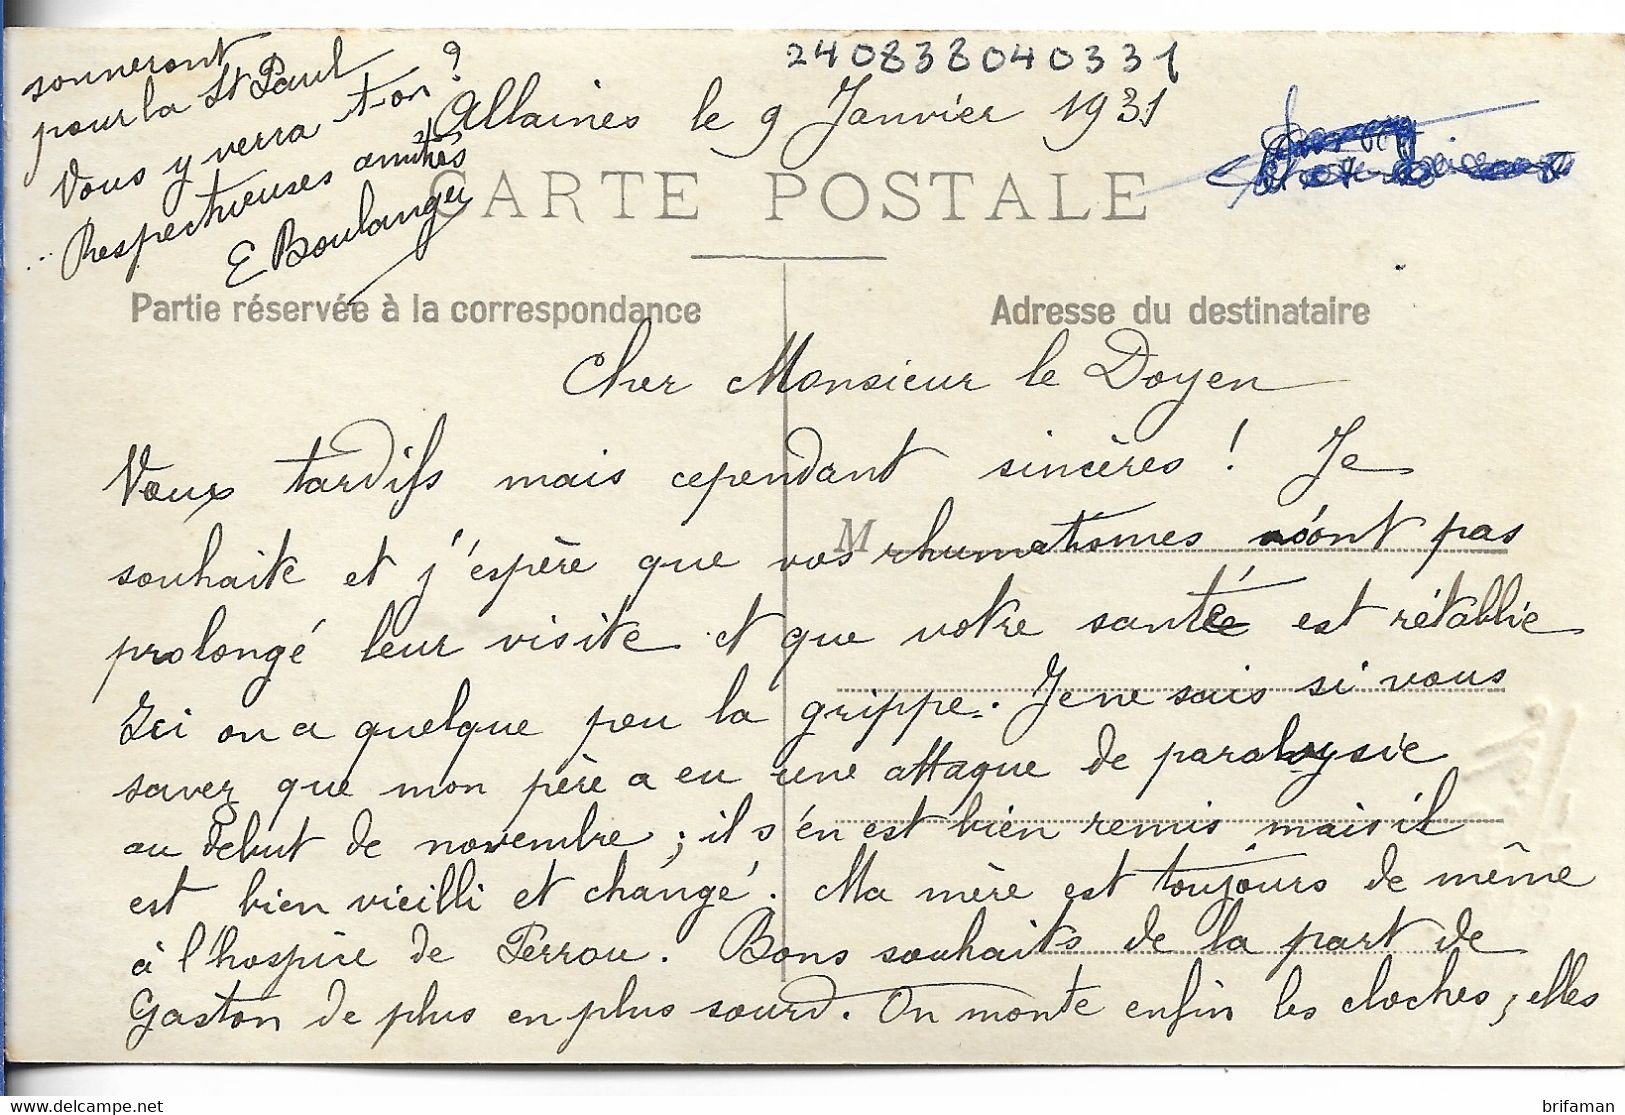 240838040331
Allaines le 9 Janvier 1931
CARTE POSTALE
Partie réservée à la correspondance
Adresse du destinataire
Cher Monsieur le Doyen
Vœux tardifs mais cependant sincères ! Je
souhaite et j'espère que vos rhumatismes n'ont pas
M
prolongé leur visite et que votre santé est rétablie
Ici on a quelque peu la grippe. Je ne sais si vous
savez que mon père a eu une attaque de paralysie
au début de novembre ; il s'en est bien remis mais il
est bien vieilli et changé. Ma mère est toujours de même
à l'hospice de Perrou. Bons souhaits de la part de
Gaston de plus en plus sourd. On monte enfin les cloches, elles
sonneront
pour la St Paul
Vous y verra t-on ?
Respectueuses amitiés
E Boulanger
www.delcampe.net
brifaman